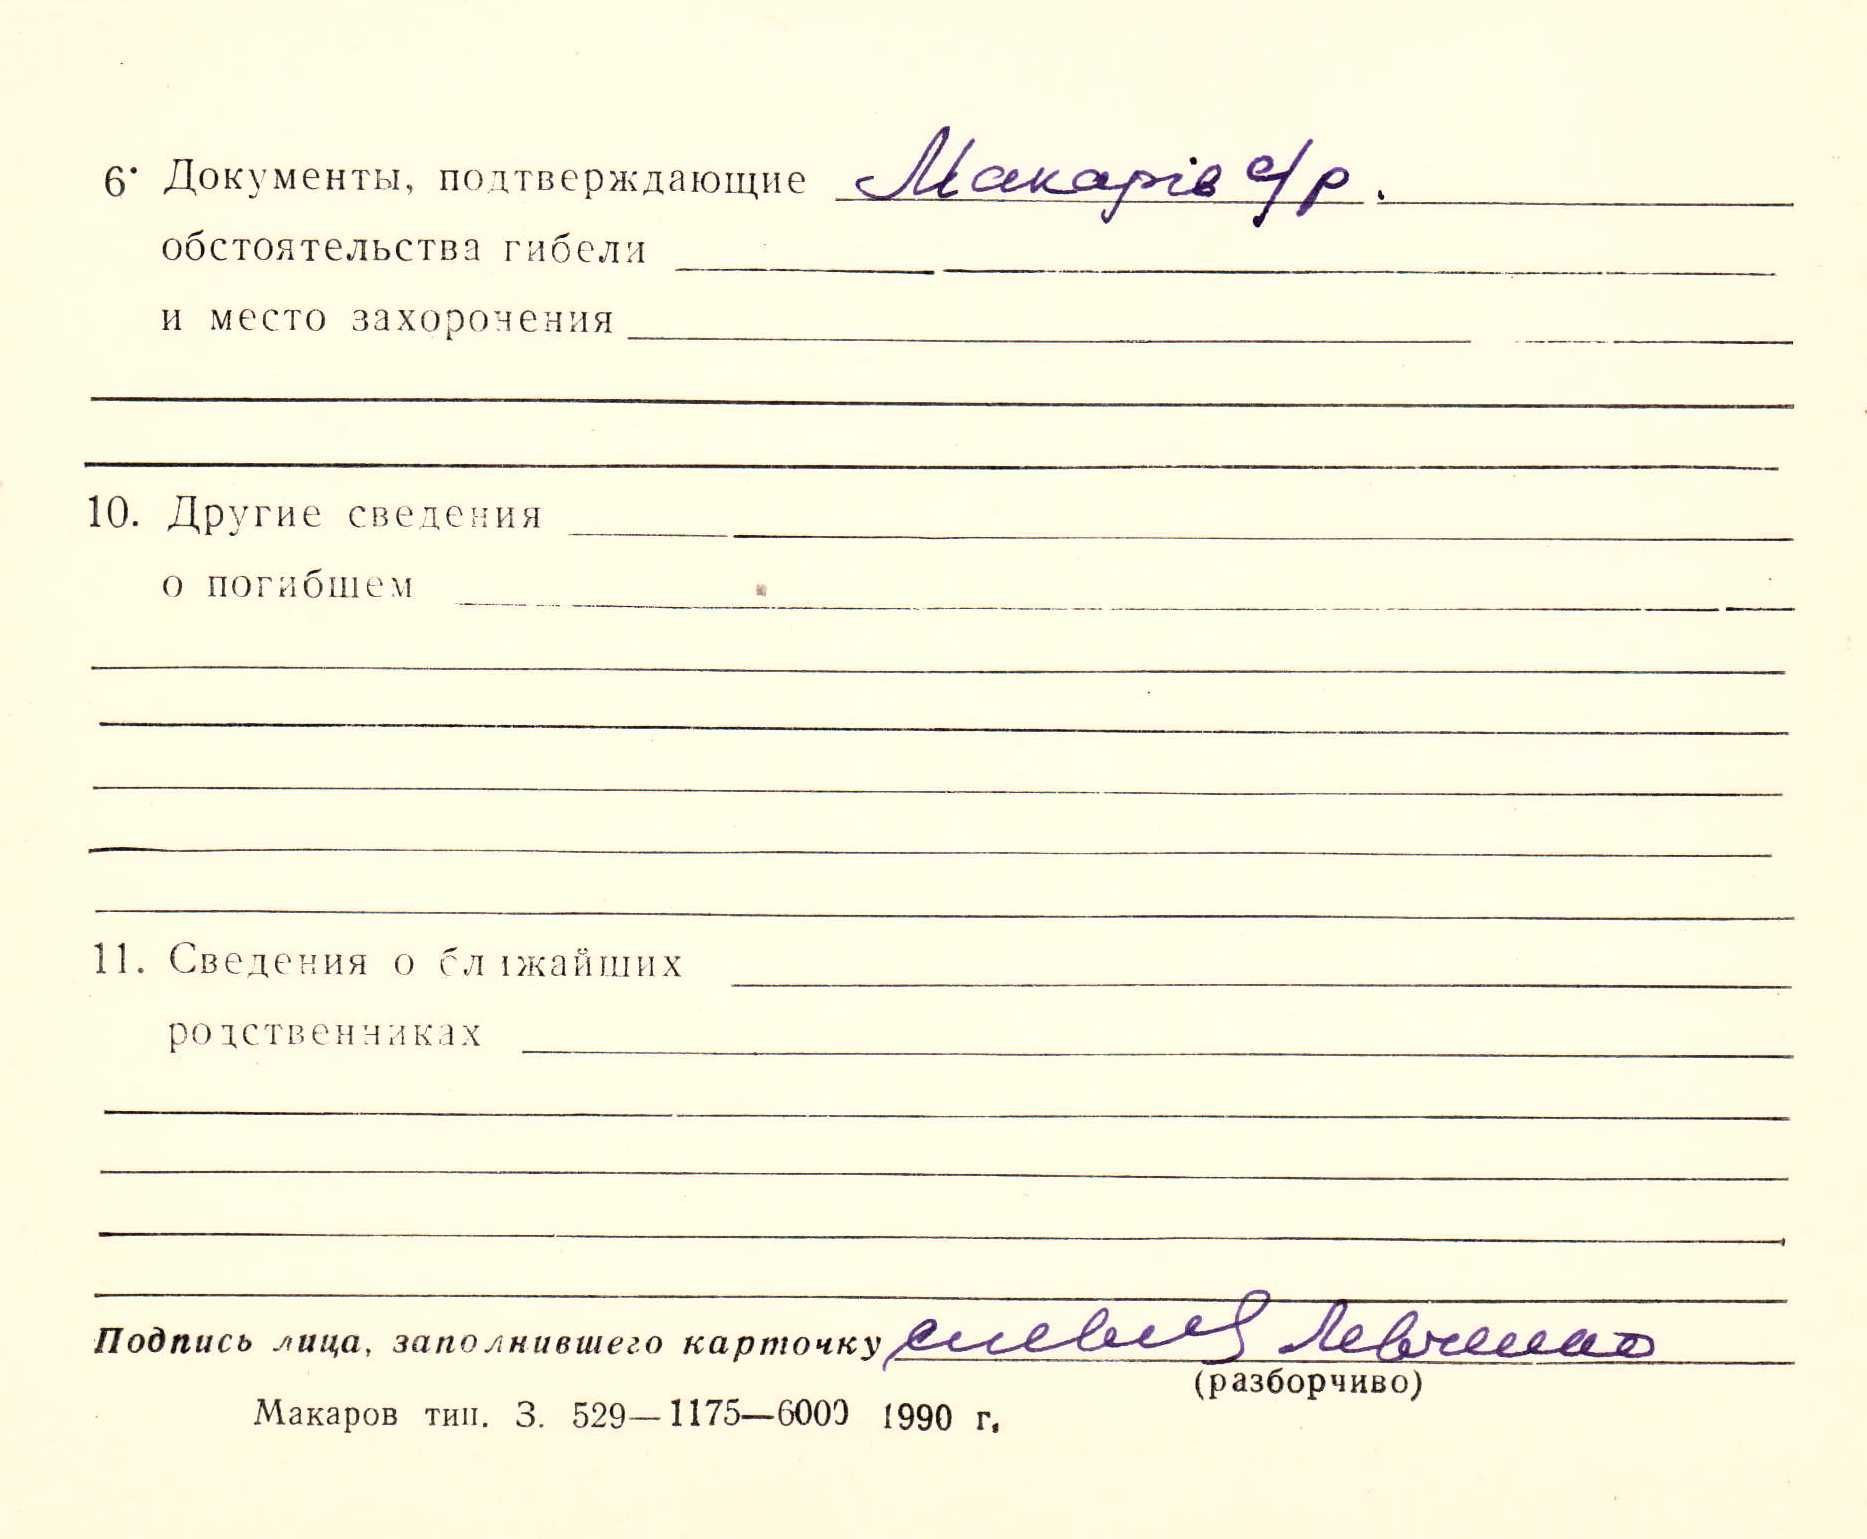 6. Документы, подтверждающие Макарів с/р.
обстоятельства гибели
и место захоронения
10. Другие сведения
о погибшем
11. Сведения о ближайших
родственниках
Подпись лица, заполнившего карточку Левченко
(разборчиво)
Макаров тип. З. 529—1175—6000 1990 г.